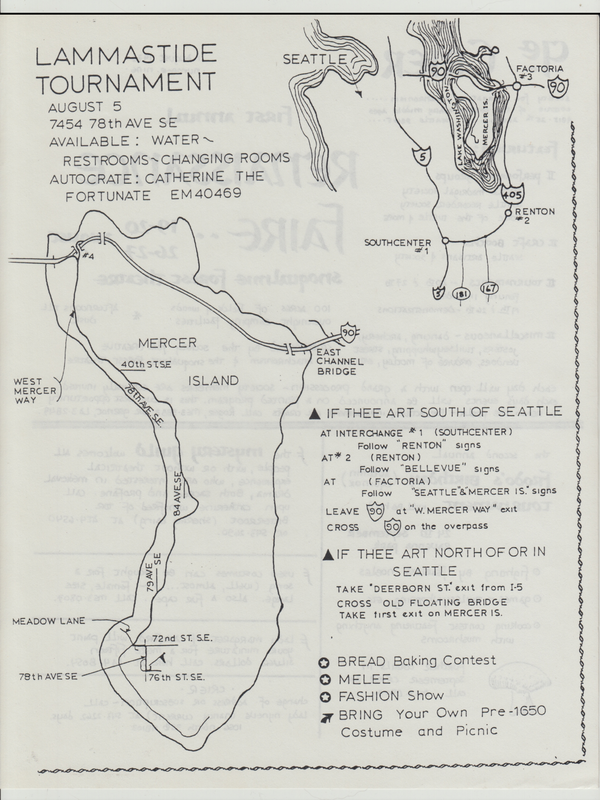 LAMMASTIDE
TOURNAMENT
AUGUST 5
7454 78th AVE SE
AVAILABLE: WATER~
RESTROOMS~CHANGING ROOMS
AUTOCRATE: CATHERINE THE
FORTUNATE EM40469
SEATTLE
90
FACTORIA
#3
90
LAKE WASHINGTON
MERCER IS.
5
405
RENTON
#2
SOUTHCENTER
#1
5
181
167
#4
90
EAST
CHANNEL
BRIDGE
MERCER
ISLAND
40th ST.SE
WEST
MERCER
WAY
78th AVE. SE.
84 AVE, SE
79 AVE
SE
MEADOW LANE
72nd ST. S.E.
78th AVE SE
76th ST. SE.
▲ IF THEE ART SOUTH OF SEATTLE
AT INTERCHANGE #1 (SOUTHCENTER)
Follow "RENTON" signs
AT #2 (RENTON)
Follow "BELLEVUE" signs
AT (FACTORIA)
Follow "SEATTLE"&"MERCER IS." signs
LEAVE 90 at "W. MERCER WAY" exit
CROSS 90 on the overpass
▲ IF THEE ART NORTH OF OR IN
SEATTLE
TAKE "DEERBORN ST." exit from I-5
CROSS OLD FLOATING BRIDGE
TAKE first exit on MERCER IS.
BREAD Baking Contest
MELEE
FASHION Show
BRING Your Own Pre-1650
Costume and Picnic